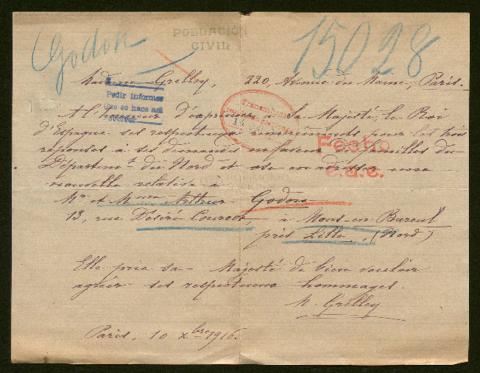 Godon
POBLACIÓN
CIVIL
15028
Madame Grelley, 220, Avenue du Maine, Paris.
Pedir informes
A l'honneur d'exprimer à Sa Majesté le Roi
d'Espagne ses respectueux remerciements pour les trois
réponses à ses demandes en faveur de familles du
Départemt du Nord et ose en adresser une
nouvelle relative à
Mr et Mme Arthur Godon
13, rue Désiré Courcot, à Mons-en-Barœul
près Lille, (Nord)
Fecho
Elle prie sa Majesté de bien vouloir
agréer ses respectueux hommages.
M. Grelley
Paris, 10 Xbre 1916.